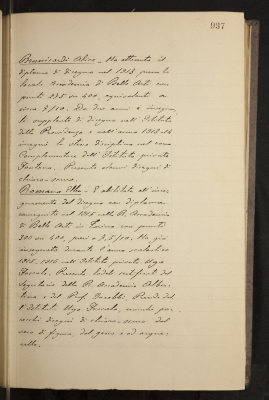 937
Brunicardi Alice - Ha ottenuto il
diploma di disegno nel 1913, presso la
locale Accademia di Belle Arti con
punti 235 su 400, equivalenti a
circa 8/00. Da tre anni è insegn.
te supplente di disegno nell'Istituto
della Provvidenza e nell'anno 1913-14
insegnò la stessa disciplina nel corso
Complementare dell'Istituto privato
Fontana. Presenta alcuni disegni di
chiaro-scuro.
Romano Ella - È abilitata all'inse-
gnamento del disegno con diploma
conseguito nel 1915 nella R. Accademia
di Belle Arti in Torino con punti
300 su 400, pari a 8,5/10. Ha già
insegnato durante l'anno scolastico
1915-1916 nell'Istituto privato Ugo
Foscolo. Presenta lodevoli certificati del
Segretario della R. Accademia Alber-
tina e del Prof. Preside del
l'Istituto Ugo Foscolo, nonché pa-
recchi disegni di chiaro-scuro, dal
vero di figura, dal gesso e ad acqua-
rello.